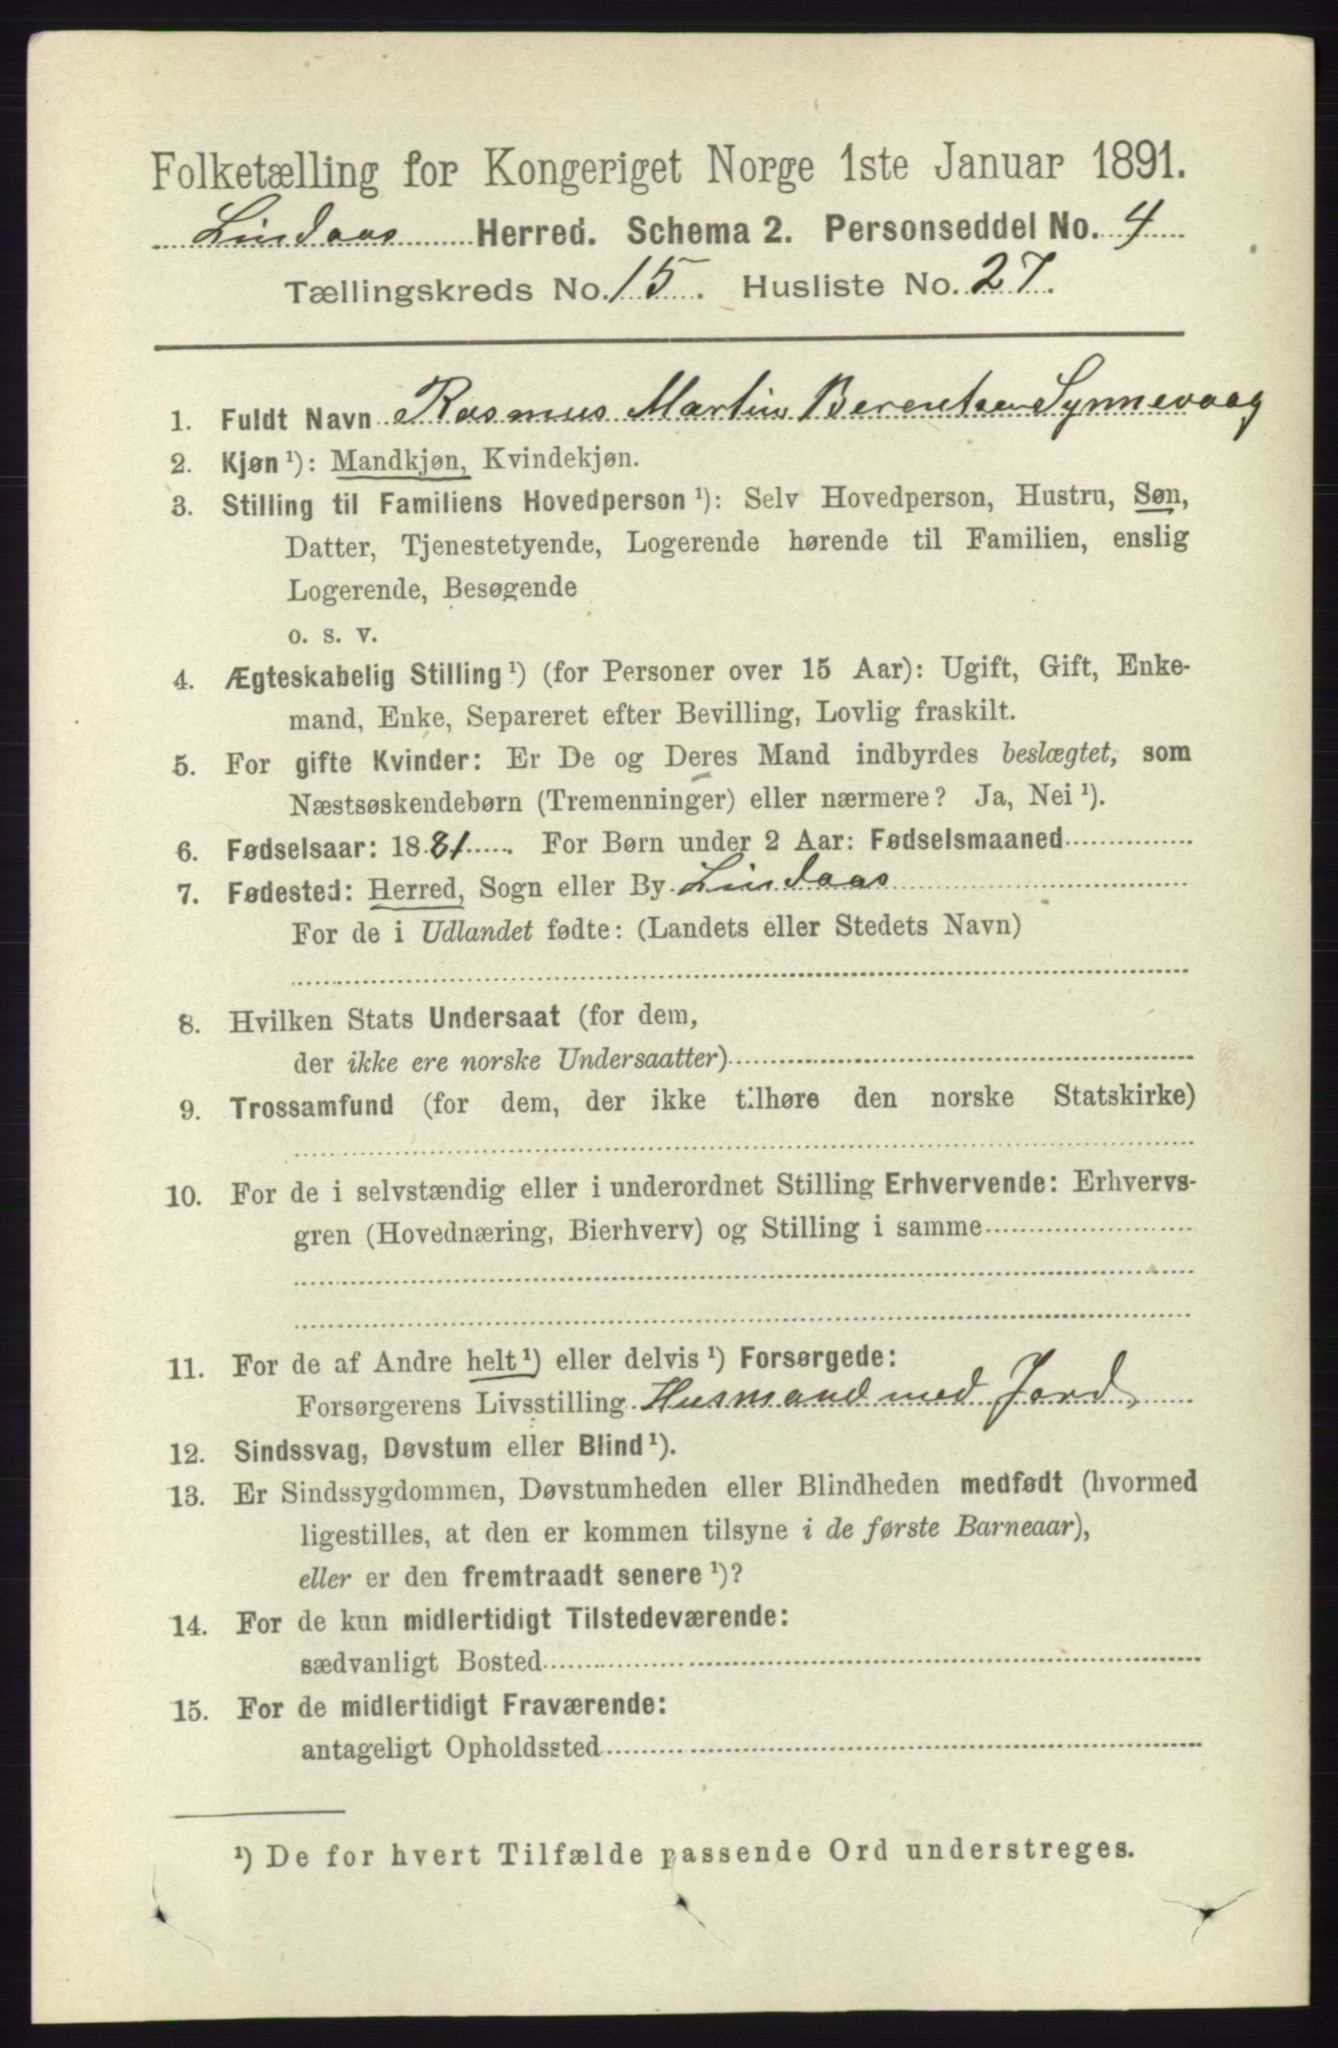 Folketælling for Kongeriget Norge 1ste Januar 1891.
Lindaas Herred. Schema 2. Personseddel No. 4
Tællingskreds No. 15. Husliste No. 27.
1. Fuldt Navn Rasmus Martin Berentsen Synnevaag
2. Kjøn¹): Mandkjøn, Kvindekjøn.
3. Stilling til Familiens Hovedperson¹): Selv Hovedperson, Hustru, Søn,
Datter, Tjenestetyende, Logerende hørende til Familien, enslig
Logerende, Besøgende
o. s. v.
4. Ægteskabelig Stilling¹) (for Personer over 15 Aar): Ugift, Gift, Enke-
mand, Enke, Separeret efter Bevilling, Lovlig fraskilt.
5. For gifte Kvinder: Er De og Deres Mand indbyrdes beslægtet, som
Næstsøskendebørn (Tremenninger) eller nærmere? Ja, Nei¹).
6. Fødselsaar: 1881. For Børn under 2 Aar: Fødselsmaaned
7. Fødested: Herred, Sogn eller By Lindaas
For de i Udlandet fødte: (Landets eller Stedets Navn)
8. Hvilken Stats Undersaat (for dem,
der ikke ere norske Undersaatter)
9. Trossamfund (for dem, der ikke tilhøre den norske Statskirke)
10. For de i selvstændig eller i underordnet Stilling Erhvervende: Erhvervs-
gren (Hovednæring, Bierhverv) og Stilling i samme
11. For de af Andre helt¹) eller delvis¹) Forsørgede:
Forsørgerens Livsstilling Husmand med Jord,
12. Sindssvag, Døvstum eller Blind¹).
13. Er Sindssygdommen, Døvstumheden eller Blindheden medfødt (hvormed
ligestilles, at den er kommen tilsyne i de første Barneaar),
eller er den fremtraadt senere¹)?
14. For de kun midlertidigt Tilstedeværende:
sædvanligt Bosted
15. For de midlertidigt Fraværende:
antageligt Opholdssted
¹) De for hvert Tilfælde passende Ord understreges.